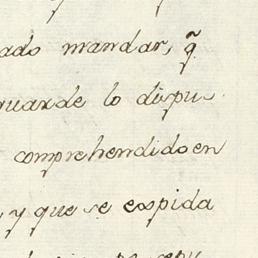 ado mandar, q̃
guarde lo dispu
comprehendido en
, y que se expida